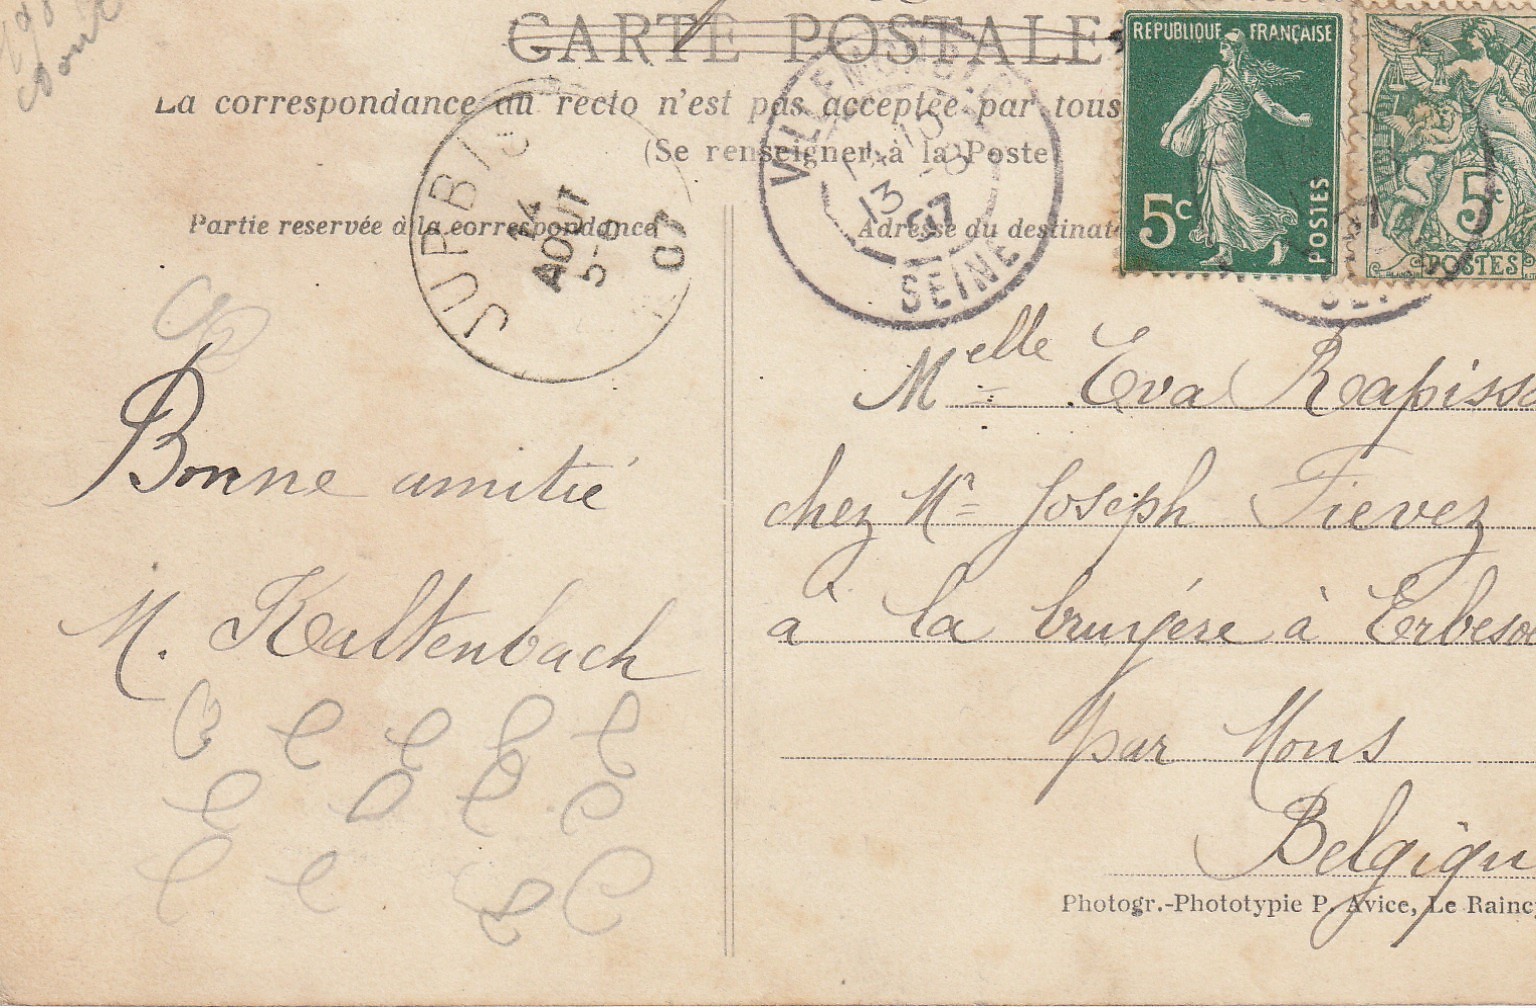 CARTE POSTALE
La correspondance au recto n'est pas acceptée par tous
(Se renseigner à la Poste)
Partie reservée à la correspondance
Adresse du destinat
JURBIS
14
AOUT
5-6
07
VILLEMOMBLE
13
07
SEINE
RÉPUBLIQUE FRANÇAISE
5c
POSTES
5c
POSTES
Melle Eva Rapisso
chez Mr Joseph Fievez
à la bruyère à Erbesoe
par Mons
Belgiqu
Bonne amitié
M. Kaltenbach
Photogr.-Phototypie P. Avice, Le Raincy